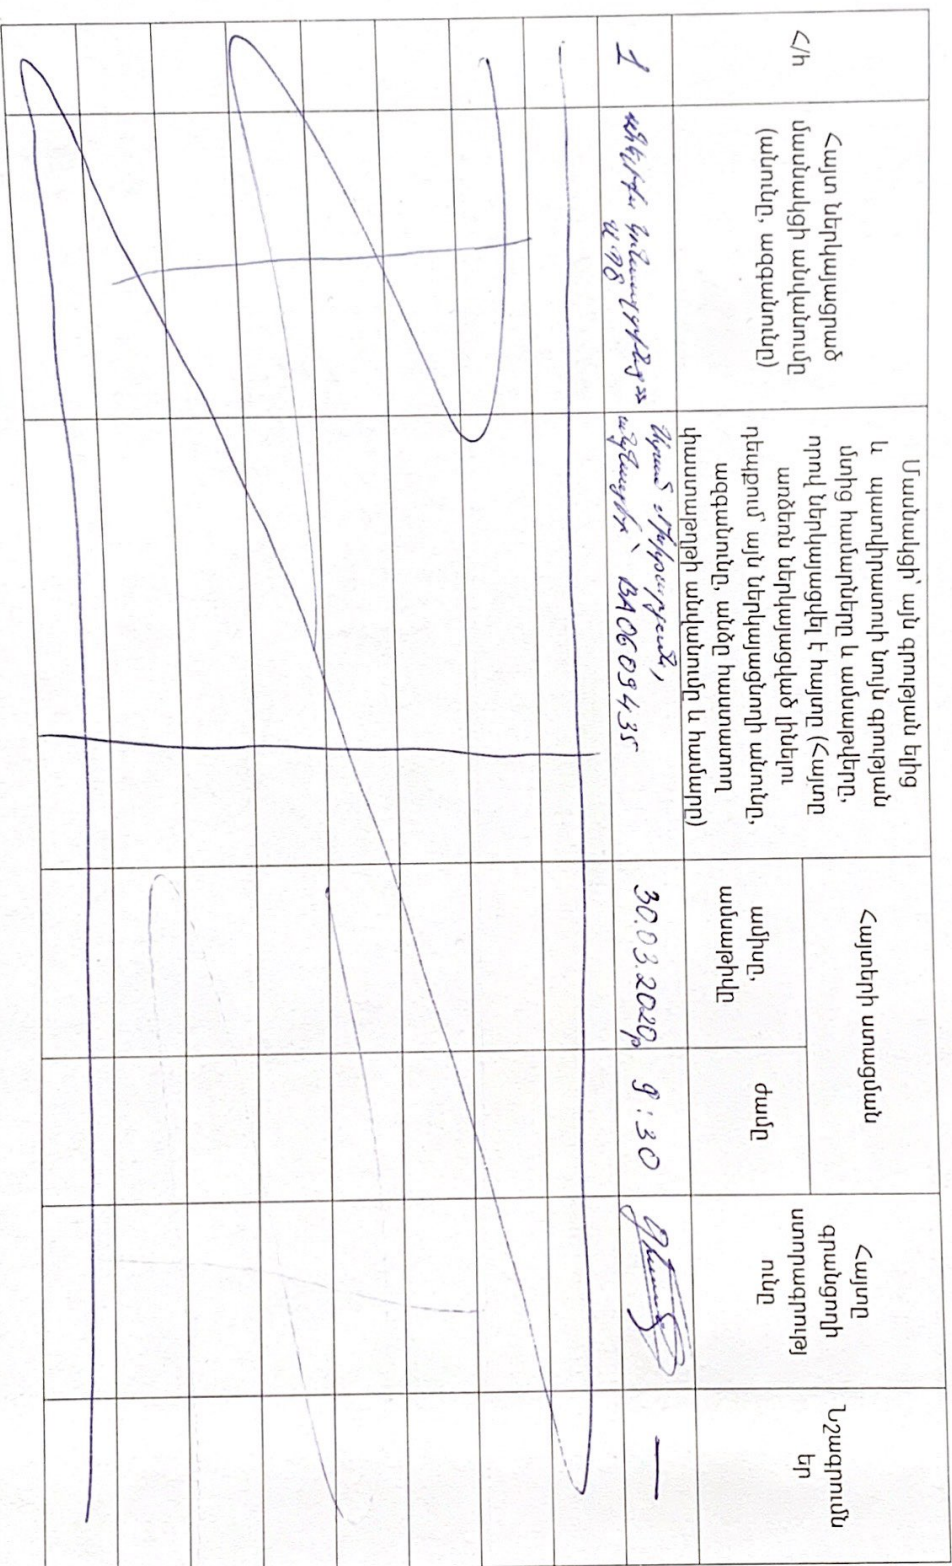 Հ/հ
Հայտ ներկայացրած
մասնակիցի անվանումը
(ընտրատես. նուտա)
Մասնակցի՝ այն գրության ելից
և պատվիրատուի նույն գրության
մտից համարները և ամսաթվերը,
որով ներկայացվել է հայտը (Հայտը
առձեռն ներկայացված լինելու
դեպքում՝ այն ներկայացնողի անունը,
ազգանունը, անձը հաստատող
փաստաթղթի անվանումը և համարը)
Հայտերի ստացման
ամիսը,
ամսաթիվը
ժամը
Հայտը
գրանցողի
ստորագրությ
ունը
Նշումներ
1
ԱՊԸ
Արամ Մխիթարյան,
անձնագիր՝ BA0609435
30.03.2020թ
9:30
—